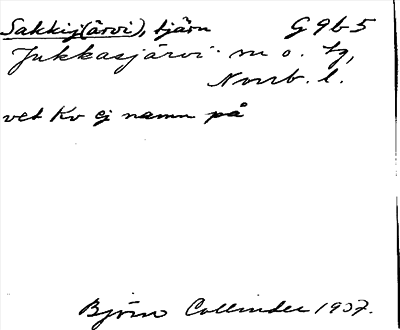 Sakkij(ärvi), tjärn G 9 b 5
Jukkasjärvi sn o. tg,
Norrb. l.
vet Kv ej namn på
Björn Collinder 1937.